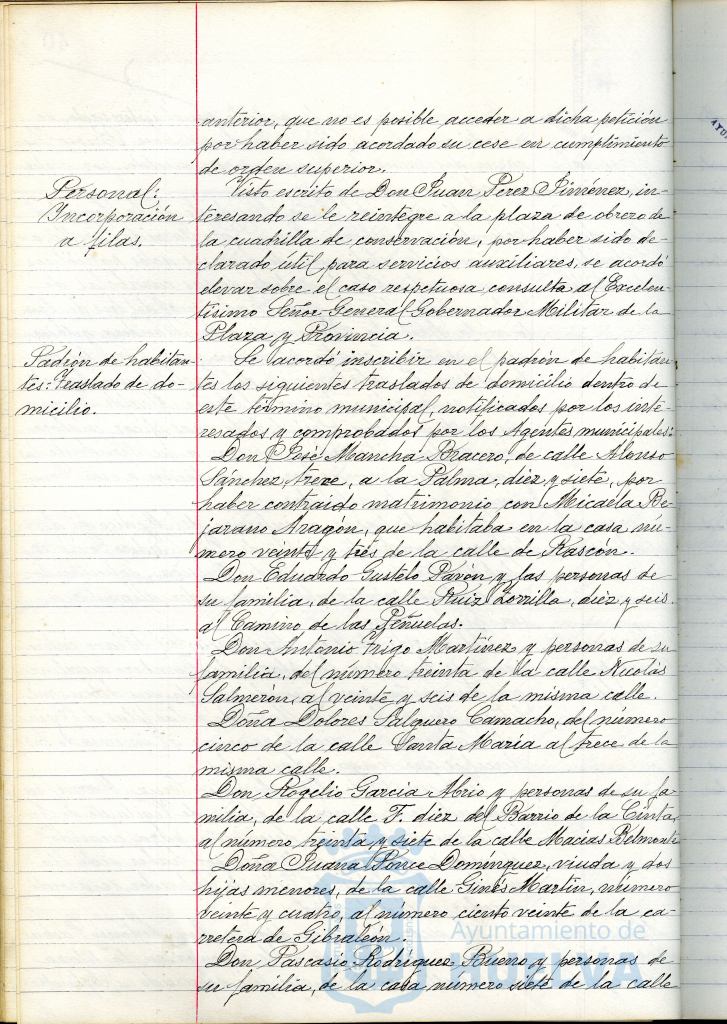 anterior, que no es posible acceder a dicha petición
por haber sido acordado su cese en cumplimiento
de orden superior.
Personal:
Incorporación
a filas.
Visto escrito de Don Juan Perez Jiménez, in-
teresando se le reintegre a la plaza de obrero de
la cuadrilla de conservación, por haber sido de-
clarado útil para servicios auxiliares, se acordó
elevar sobre el caso respetuosa consulta al Excelen-
tísimo Señor General Gobernador Militar de la
Plaza y Provincia.
Padrón de habitan-
tes: Traslado de do-
micilio.
Se acordó inscribir en el padrón de habitan-
tes los siguientes traslados de domicilio dentro de
este término municipal, notificados por los inte-
resados y comprobados por los Agentes municipales:
Don José Mancha Bracero, de calle Alonso
Sánchez, trece, a la Palma, diez y siete, por
haber contraido matrimonio con Micaela Be-
jarano Aragón, que habitaba en la casa nú-
mero veinte y tres de la calle de Rascón.
Don Eduardo Gustelo Pavón y las personas de
su familia, de la calle Ruiz Zorrilla, diez y seis
al Camino de las Peñuelas.
Don Antonio Trigo Martínez y personas de su
familia, del número treinta de la calle Nicolás
Salmerón, al veinte y seis de la misma calle.
Doña Dolores Salguero Camacho, del número
cinco de la calle Santa María al trece de la
misma calle.
Don Rogelio Garcia Abrio y personas de su fa-
milia, de la calle F. diez del Barrio de la Cinta,
al número treinta y siete de la calle Macias Belmonte
Doña Juana Ponce Dominguez, viuda y dos
hijas menores, de la calle Ginés Martín, número
veinte y cuatro, al número ciento veinte de la ca-
rretera de Gibraleón.
Don Pascasio Rodríguez Bueno y personas de
su familia, de la casa número siete de la calle
Ayuntamiento de
HUELVA